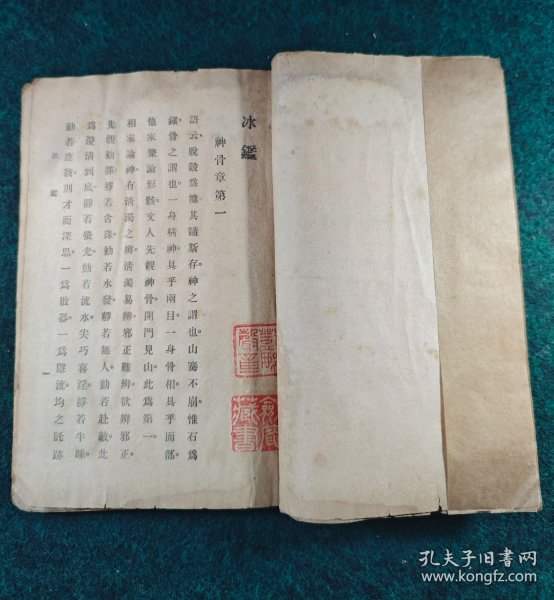 冰鑑
神骨章第一
語云脫穀爲糠其髓斯存神之謂也。山騫不崩惟石爲
鎮骨之謂也。一身精神具乎兩目。一身骨相具乎面部。
他家兼論形骸。文人先觀神骨。開門見山。此爲第一。
相家論神。有清濁之辨。清濁易辨。邪正難辨。欲辨邪正。
先觀動靜。靜若含珠。動若水發。靜若無人。動若赴敵。此
爲澄清到底。靜若螢光。動若流水。尖巧喜淫。靜若半睡。
動若鹿駭。別才而深思。一爲敗器。一爲隱流。均之託跡
冰鑑
一
藏書
孔夫子旧书网
www.kongfz.com